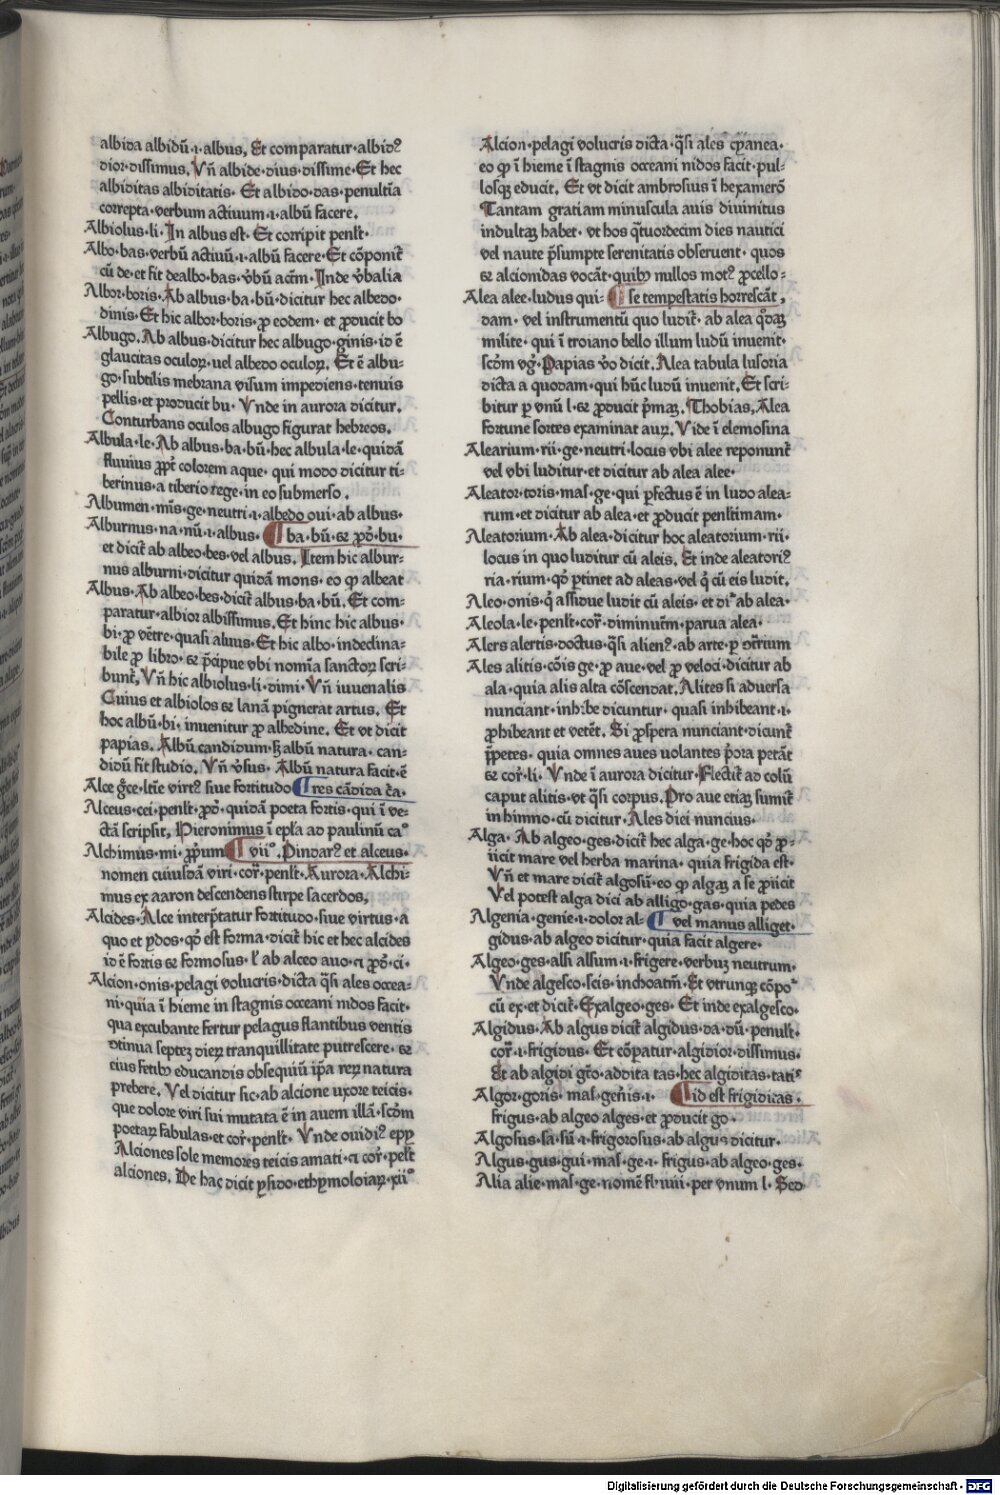 albida albidū·i·albus, Et comparatur·albidꝰ
dior·dissimus. Vñ albide·dius·dissime·Et hec
albiditas albiditatis· Et albido·das·penultīa
correpta·verbum actiuum·i·albū facere.
Albiolus·li·In albus est· Et corripit penlt̄·
Albo·bas·verbū actiuū·i·albū facere·Et cōponit̄
cū de·et fit dealbo·bas·v̄bū actīm·Inde v̄balia
Albor·boris·Ab albus·ba·bū·dicitur hec albedo·
dinis·Et hic albor·boris·ꝓ eodem·et ꝓducit bo
Albugo·Ab albus·dicitur hec albugo·ginis·id ē
glaucitas oculoꝝ·uel albedo oculoꝝ· Et ē albu-
go·subtilis mebrana visum impediens·tenuis
pellis·et producit bu· Vnde in aurora dicitur.
Conturbans oculos albugo figurat hebreos.
Albula·le·Ab albus·ba·bū·hec albula·le·quidā
fluuius ꝓpt̄ colorem aque·qui modo dicitur ti-
berinus·a tiberio rege·in eo submerso.
Albumen·mīs·ge·neutri·i·albedo oui·ab albus·
Alburnus·na·nū·i·albus· ¶ ba·bū·et ꝓd̄·bu·
et dicit̄ ab albeo·bes·vel albus. Item hic albur-
nus alburni·dicitur quidā mons·eo ꝙ albeat
Albus·Ab albeo·bes·dicit̄ albus·ba·bū·Et com-
paratur·albior albissimus·Et hinc hic albus·
bi·ꝓ vētre·quasi aluus·Et hic albo·indeclina-
bile ꝓ libro·et p̄cipue vbi nomīa sanctoꝝ scri-
bunt̄, Vñ hic albiolus·li·dimi·Vñ iuuenalis
Cuius et albiolos et lanā pignerat artus. Et
hoc albū·bi·inuenitur ꝓ albedine. Et vt dicit
papias. Albū candidum·ꜩ albū natura·can-
didū fit studio. Vñ v̄sus· Albū natura facit·ē
Alce gr̄ce·ltīe virtꝰ siue fortitudo ¶ res cādida c̄a·
Alceus·cei·penlt̄·ꝓd̄·quidā poeta fortis·qui ī ve-
ctā scripsit, Hieronimus ī epl̄a ad paulinū caᵒ
Alchimus·mi·ꝓprum ¶ viiᵒ. Pindarꝰ et alceus·
nomen cuiusdā viri·cor̄·penlt̄·Aurora·Alchi-
mus ex aaron descendens stirpe sacerdos,
Alcides·Alce interp̄tatur fortitudo·siue virtus·a
quo et ydos·qd̄ est forma·dicit̄ hic et hec alcides
id ē fortis et formosus·l' ab alceo auo·ci ꝓd̄·ci·
Alcion·onis·pelagi volucris·dicta q̄si ales occea-
ni·quia ī hieme in stagnis occeani nidos facit·
qua excubante fertur pelagus flantibus ventis
dtinua septeꝫ dieꝝ tranquillitate putrescere·et
eius fetibꝰ educandis obsequiū ip̄a reꝝ natura
prebere. Vel dicitur sic·ab alcione uxore teicis·
que dolore viri sui mutata ē in auem illā·scd̄m
poetaꝝ fabulas·et cor̄·penlt̄· Vnde ouidiꝰ epp̄
Alciones sole memores teicis amati·ci cor̄·pelt̄
alciones. De hac dicit ysido·ethymoloiaꝝ·xiiᵒ
Alcion·pelagi volucris dicta·q̄si ales cyanea·
eo ꝙ ī hieme ī stagnis occeani nidos facit·pul-
losqꝫ educit. Et vt dicit ambrosius ī hexamerō
Tantam gratiam minuscula auis diuinitus
indultaꝫ habet·vt hos q̄tuordecim dies nautici
vel naute p̄sumpte serenitatis obseruent·quos
et alcionidas vocāt·quibꝰ nullos motꝰ ꝓcello-
Alea alee·ludus qui- ¶ se tempestatis horrescāt,
dam·vel instrumentū quo ludit̄·ab alea q̄daꝫ
milite·qui ī troiano bello illum ludū inuenit·
scd̄m vg̈·Papias v̄o dicit. Alea tabula lusoria
dicta a quodam·qui hūc ludū inuenit. Et scri-
bitur ꝑ vnū l·et ꝓducit p̄maꝫ. Thobias, Alea
fortune sortes examinat auꝝ. Vide ī elemosina
Alearium·rii·ge·neutri·locus vbi alee reponunt̄
vel vbi luditur·et dicitur ab alea alee·
Aleator·toris·mas·ge·qui ꝑfectus ē in ludo alea-
rum·et dicitur ab alea·et ꝓducit penltimam·
Aleatorium·Ab alea·dicitur hoc aleatorium·rii·
locus in quo luditur cū aleis. Et inde aleatoriꝰ
ria·rium·qd̄ ptinet ad aleas·vel q̄ cū eis ludit,
Aleo·onis·q̄ assidue ludit cū aleis·et diᵗ ab alea·
Aleola·le·penlt̄·cor̄·diminutīm·parua alea·
Alers alertis·doctus·q̄si alienꝰ·ab arte·ꝑ otrium
Ales alitis·cōis ge·ꝓ aue·vel ꝓ veloci·dicitur ab
ala·quia alis alta cōscendat. Alites si aduersa
nunciant·inhibe dicuntur·quasi inhibeant·i·
ꝓhibeant et vetēt. Si ꝓspera nunciant·dicunt̄
p̄petes·quia omnes aues uolantes p̄ora petāt
et cor̄·li· Vnde ī aurora dicitur·Flectit̄ ad colū
caput alitis·vt q̄si corpus. Pro aue etiaꝫ sumit̄
in himno·cū dicitur· Ales diei nuncius·
Alga· Ab algeo·ges·dicit̄ hec alga·ge·hoc qd̄ ꝓ-
iicit mare vel herba marina·quia frigida est·
Vñ et mare dicit̄ algosū·eo ꝙ algaꝫ a se ꝓiicit
Vel potest alga dici ab alligo·gas·quia pedes
Algenia·genie·i·dolor al- ¶ vel manus alliget·
gidus·ab algeo dicitur·quia facit algere·
Algeo·ges·alsi alsum·i·frigere·verbuꝫ neutrum·
Vnde algesco·scis·inchoatīm·Et vtrunqꝫ cōpoᵗ
cū ex·et dicit̄· Exalgeo·ges· Et inde exalgesco·
Algidus·Ab algus dicit̄ algidus·da·dū·penult̄·
cor̄·i·frigidus· Et cōparatur·algidior·dissimus·
Et ab algidi gtō·addita tas·hec algiditas·tatiˢ
Algor·goris·mas·geñis·i· ¶ id est frigiditas·
frigus·ab algeo alges·et ꝓducit go·
Algosus·sa·sū·i·frigorosus·ab algus dicitur·
Algus·gus·gui·mas·ge·i·frigus·ab algeo·ges·
Alia alie·mas·ge·nomē fluuii·per vnum l· Sed